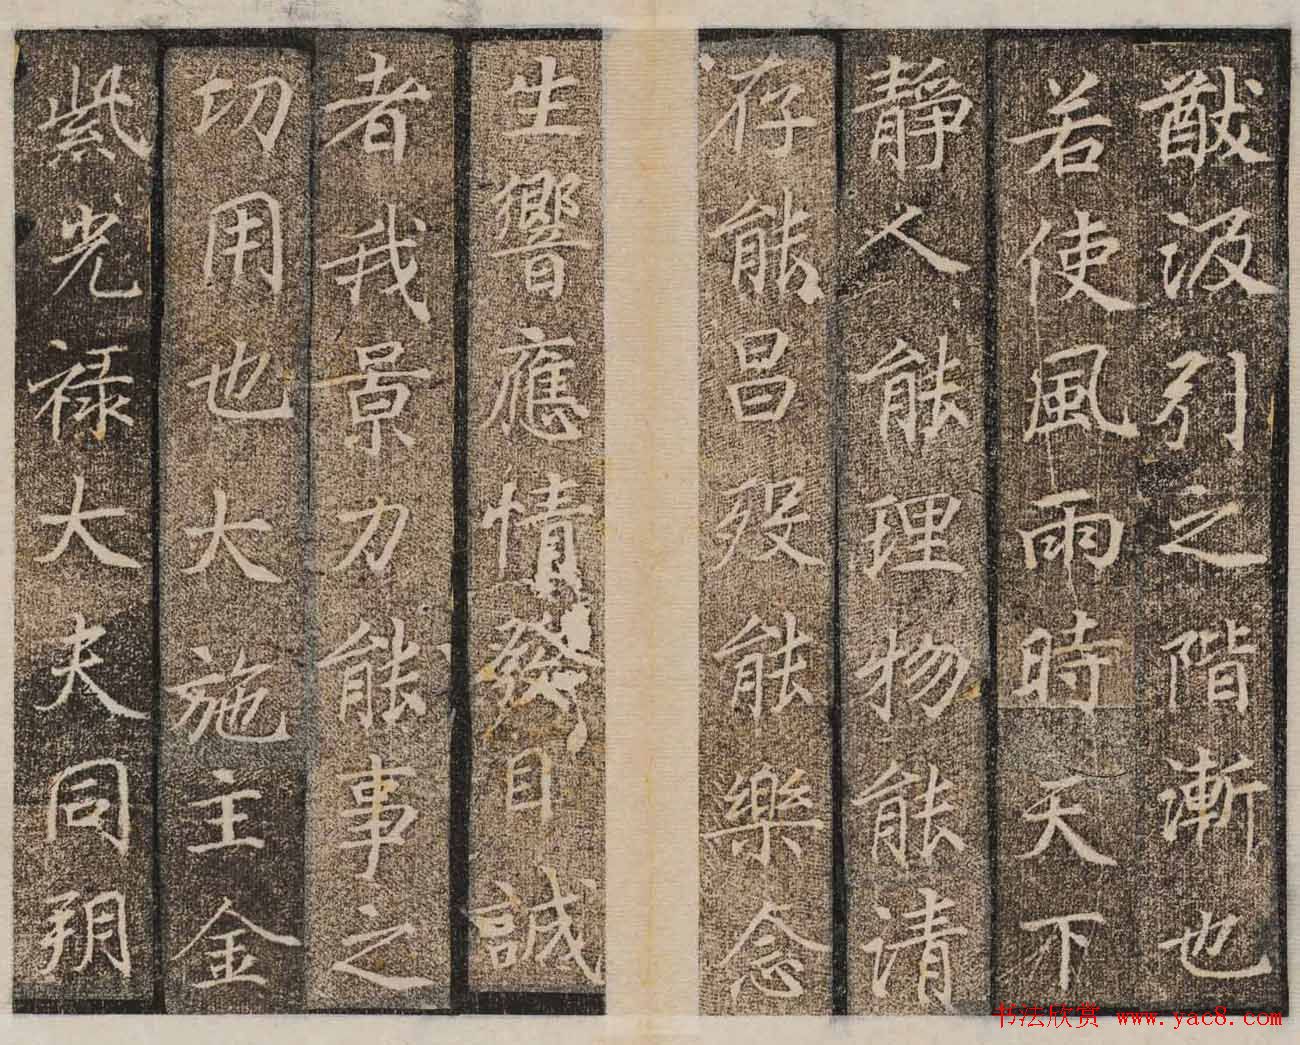 猷汲引之階漸也
若使風雨時天下
靜人能理物能請
存能昌歿能樂念
生響應情發目誠
者我景力能事之
功用也大施主金
紫光禄大夫同朔
书法欣赏 www.yac8.com